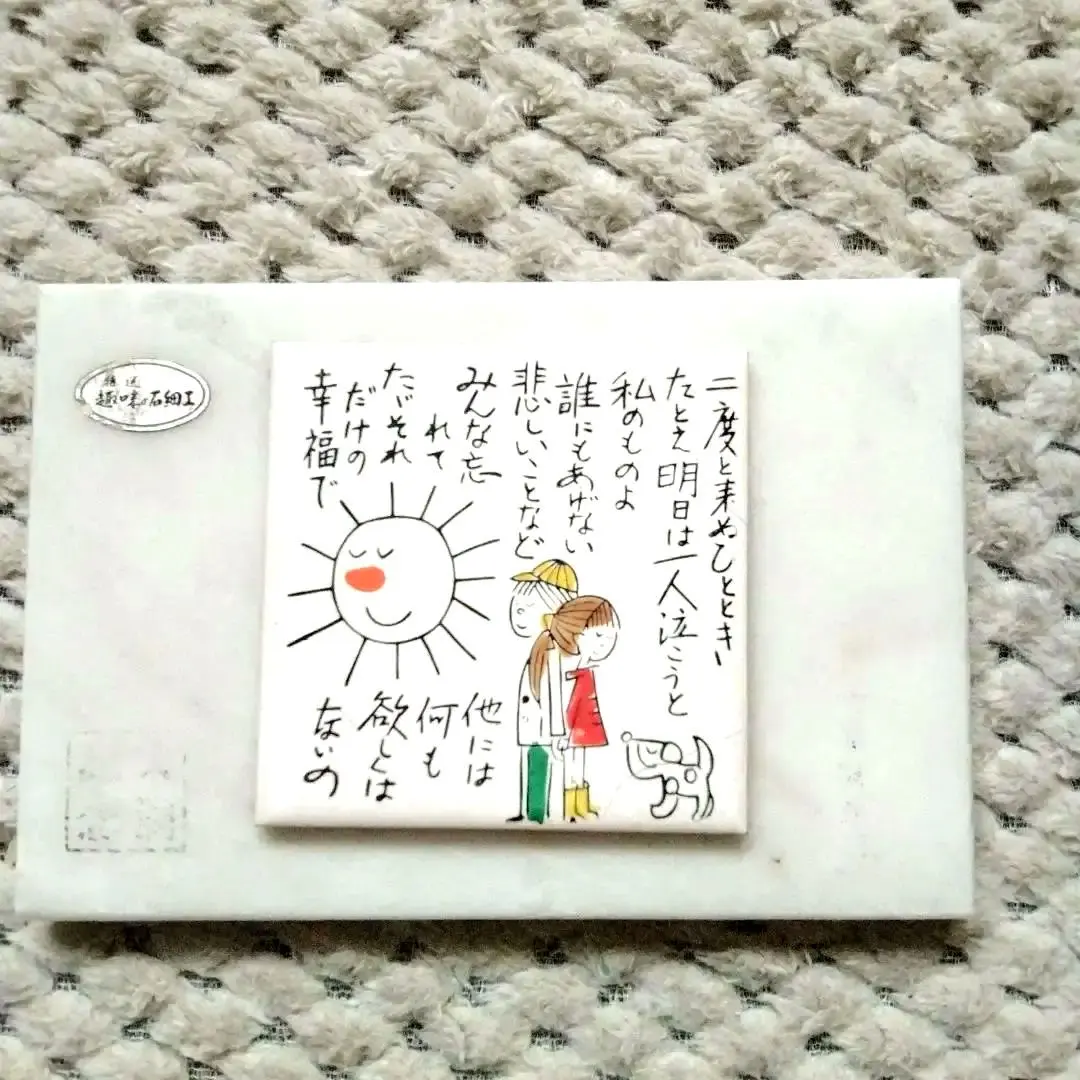 二度と来ぬひととき
たとえ明日は一人泣こうと
私のものよ
誰にもあげない
悲しいことなど
みんな忘
れて
たゞそれ
だけの
幸福で
他には
何も
欲しくは
ないの
趣味の石細工